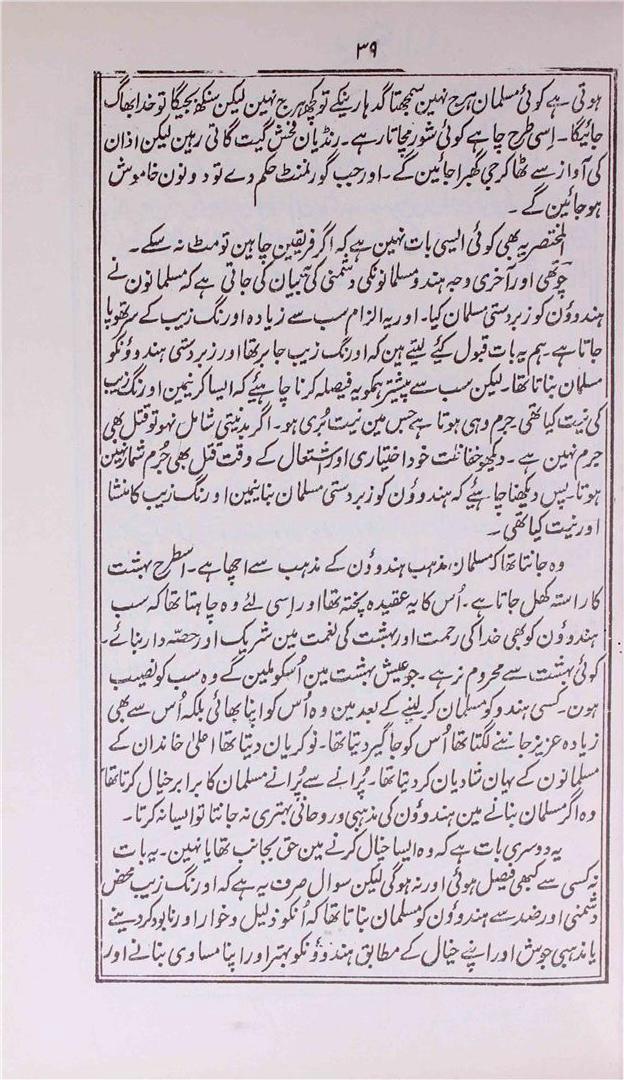 ۳۹
ہوتی ہے کوئی مسلمان ہرج نہین سمجھتا گدہا رینکے تو کچھ ہرج نہین لیکن سنکھ بجیگا تو خدا بھاگ
جائیگا۔ اِسی طرح چاہے کوئی شور مچاتا رہے۔ رنڈیان فحش گیت گاتی رہین لیکن اذان
کی آواز سے ٹھاکر جی گھبرا جائین گے۔ اور جب گورنمنٹ حکم دے تو دونون خاموش
ہو جائین گے۔
المختصر یہ بھی کوئی ایسی بات نہین ہے کہ اگر فریقین چاہین تو مٹ نہ سکے۔
چوتھی اور آخری وجہ ہندو مسلمانونکی دشمنی کی یہ بیان کی جاتی ہے کہ مسلمانون نے
ہندوؤن کو زبردستی مسلمان کیا۔ اور یہ الزام سب سے زیادہ اورنگ زیب کے سر تھوپا
جاتا ہے۔ ہم یہ بات قبول کیے لیتے ہین کہ اورنگ زیب جابر تھا اور زبردستی ہندوؤنکو
مسلمان بناتا تھا۔ لیکن سب سے پیشتر ہمکو یہ فیصلہ کرنا چاہئے کہ ایسا کرنیمین اورنگ زیب
کی نیت کیا تھی۔ جرم وہی ہوتا ہے جس مین نیت بُری ہو۔ اگر بدنیتی شامل نہو تو قتل بھی
جرم نہین ہے۔ دیکھو حفاظت خود اختیاری اور اشتعال کے وقت قتل بھی جُرم شمار نہین
ہوتا۔ پس دیکھنا چاہئے کہ ہندوؤن کو زبردستی مسلمان بنانیمین اورنگ زیب کا منشا
اور نیت کیا تھی۔
وہ جانتا تھا کہ مسلمان مذہب ہندوؤن کے مذہب سے اچھا ہے۔ اسطرح بہشت
کا راستہ کھل جاتا ہے۔ اُس کا یہ عقیدہ پختہ تھا اور اِسی لئے وہ چاہتا تھا کہ سب
ہندوؤن کو بھی خدا کی رحمت اور بہشت کی نعمت مین شریک اور حصّہ دار بنائے۔
کوئی بہشت سے محروم نہ رہے۔ جو عیش بہشت مین اُسکو ملین گے وہ سب کو نصیب
ہون۔ کسی ہندو کو مسلمان کر لینے کے بعد مین وہ اُس کو اپنا بھائی بلکہ اُس سے بھی
زیادہ عزیز جاننے لگتا تھا اُس کو جاگیر دیتا تھا۔ نوکریان دیتا تھا اعلیٰ خاندان کے
مسلمانون کے یہان شادیان کر دیتا تھا۔ پُرانے سے پُرانے مسلمان کا برابر خیال کرتا تھا
وہ اگر مسلمان بنانے مین ہندوؤن کی مذہبی و روحانی بہتری نہ جانتا تو ایسا نہ کرتا۔
یہ دوسری بات ہے کہ وہ ایسا خیال کرنے مین حق بجانب تھا یا نہین۔ یہ بات
نہ کسی سے کبھی فیصل ہوئی اور نہ ہوگی لیکن سوال صرف یہ ہے کہ اورنگ زیب محض
دشمنی اور ضد سے ہندوؤن کو مسلمان بناتا تھا کہ اُنکو ذلیل و خوار اور نابود کر دینے
یا مذہبی جوش اور اپنے خیال کے مطابق ہندوؤنکو بہتر اور اپنا مساوی بنانے اور